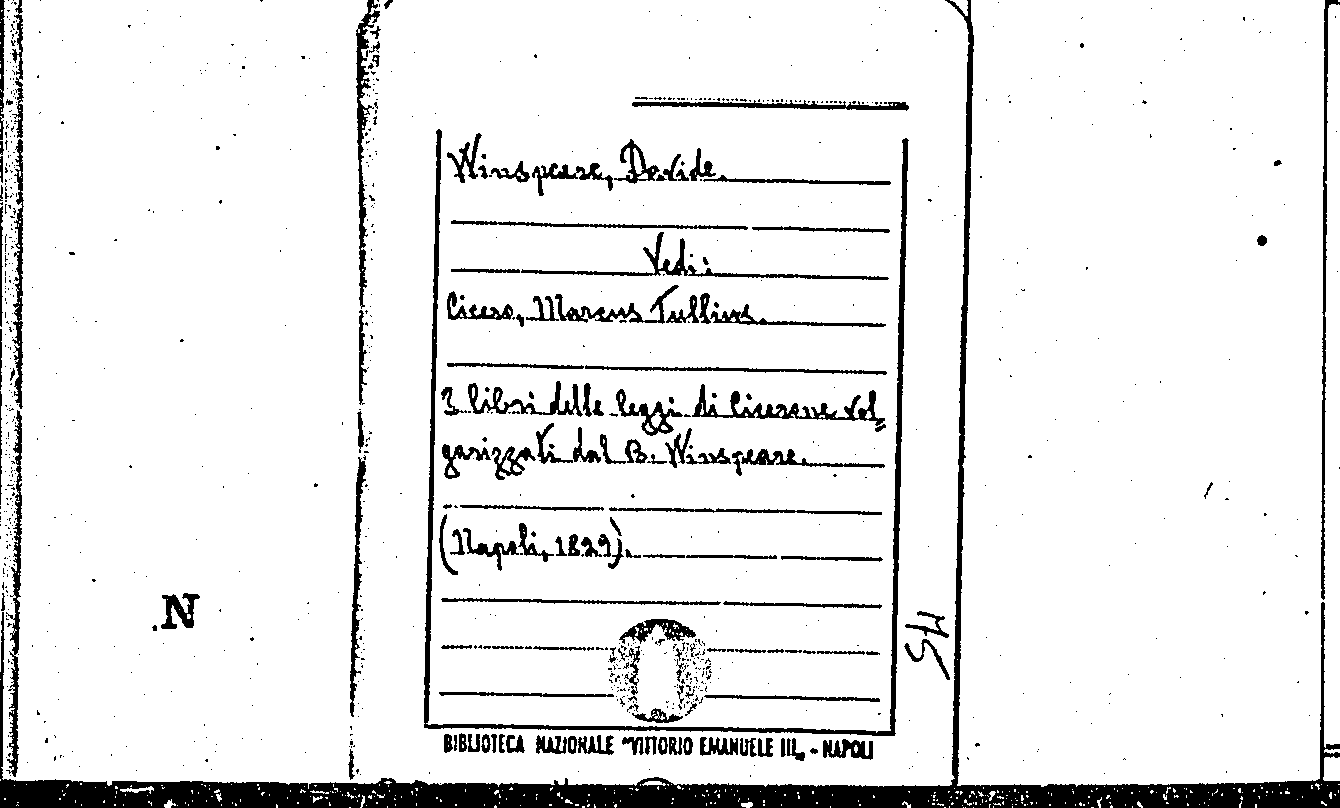 Winspeare, Davide.
Vedi:
Cicero, Marcus Tullius.
3 libri delle leggi di Cicerone vol=
garizzati dal B. Winspeare.
(Napoli, 1829).
N
45
BIBLIOTECA NAZIONALE "VITTORIO EMANUELE III„ - NAPOLI